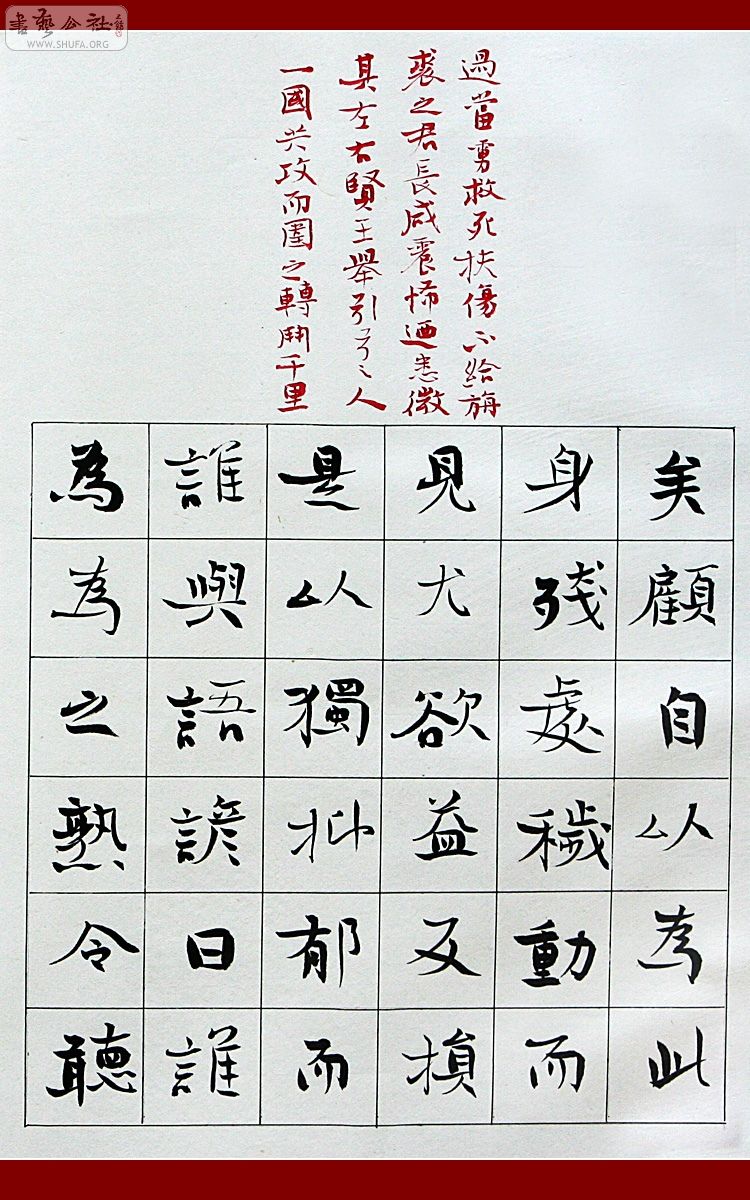 書藝公社
WWW.SHUFA.ORG
過當虜救死扶傷不給旃
裘之君長咸震怖迺悉徵
其左右賢王舉引弓之人
一國共攻而圍之轉鬥千里
矣顧自以為此
身殘處穢動而
見尤欲益反損
是以獨抑郁而
誰與語諺曰誰
為為之熟令聽